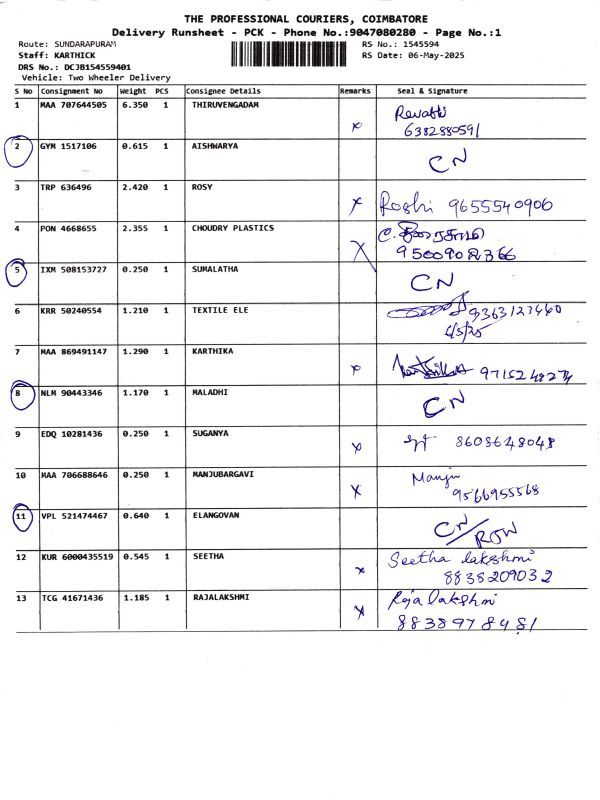 THE PROFESSIONAL COURIERS, COIMBATORE
Delivery Runsheet - PCK - Phone No.:9047080280 - Page No.:1
Route: SUNDARAPURAM
RS No.: 1545594
Staff: KARTHICK
RS Date: 06-May-2025
DRS No.: DCJB154559401
Vehicle: Two Wheeler Delivery
S No Consignment No Weight PCS Consignee Details Remarks Seal & Signature
1 MAA 707644505 6.350 1 THIRUVENGADAM x Revathi
6382880591
2 GYM 1517106 0.615 1 AISHWARYA CN
3 TRP 636496 2.420 1 ROSY x Roshi 9655540906
4 PON 4668655 2.355 1 CHOUDRY PLASTICS X
9500902366
5 IXM 508153727 0.250 1 SUMALATHA CN
6 KRR 50240554 1.210 1 TEXTILE ELE 9363123460
6/5/25
7 MAA 869491147 1.290 1 KARTHIKA x Karthika
8 NLM 90443346 1.170 1 MALADHI CN
9 EDQ 10281436 0.250 1 SUGANYA x 8608648048
10 MAA 706688646 0.250 1 MANJUBARGAVI x Manju
9566955568
11 VPL 521474467 0.640 1 ELANGOVAN CN/
12 KUR 6000435519 0.545 1 SEETHA x Seetha lakshmi
8838209032
13 TCG 41671436 1.185 1 RAJALAKSHMI x Raja lakshmi
8838978481